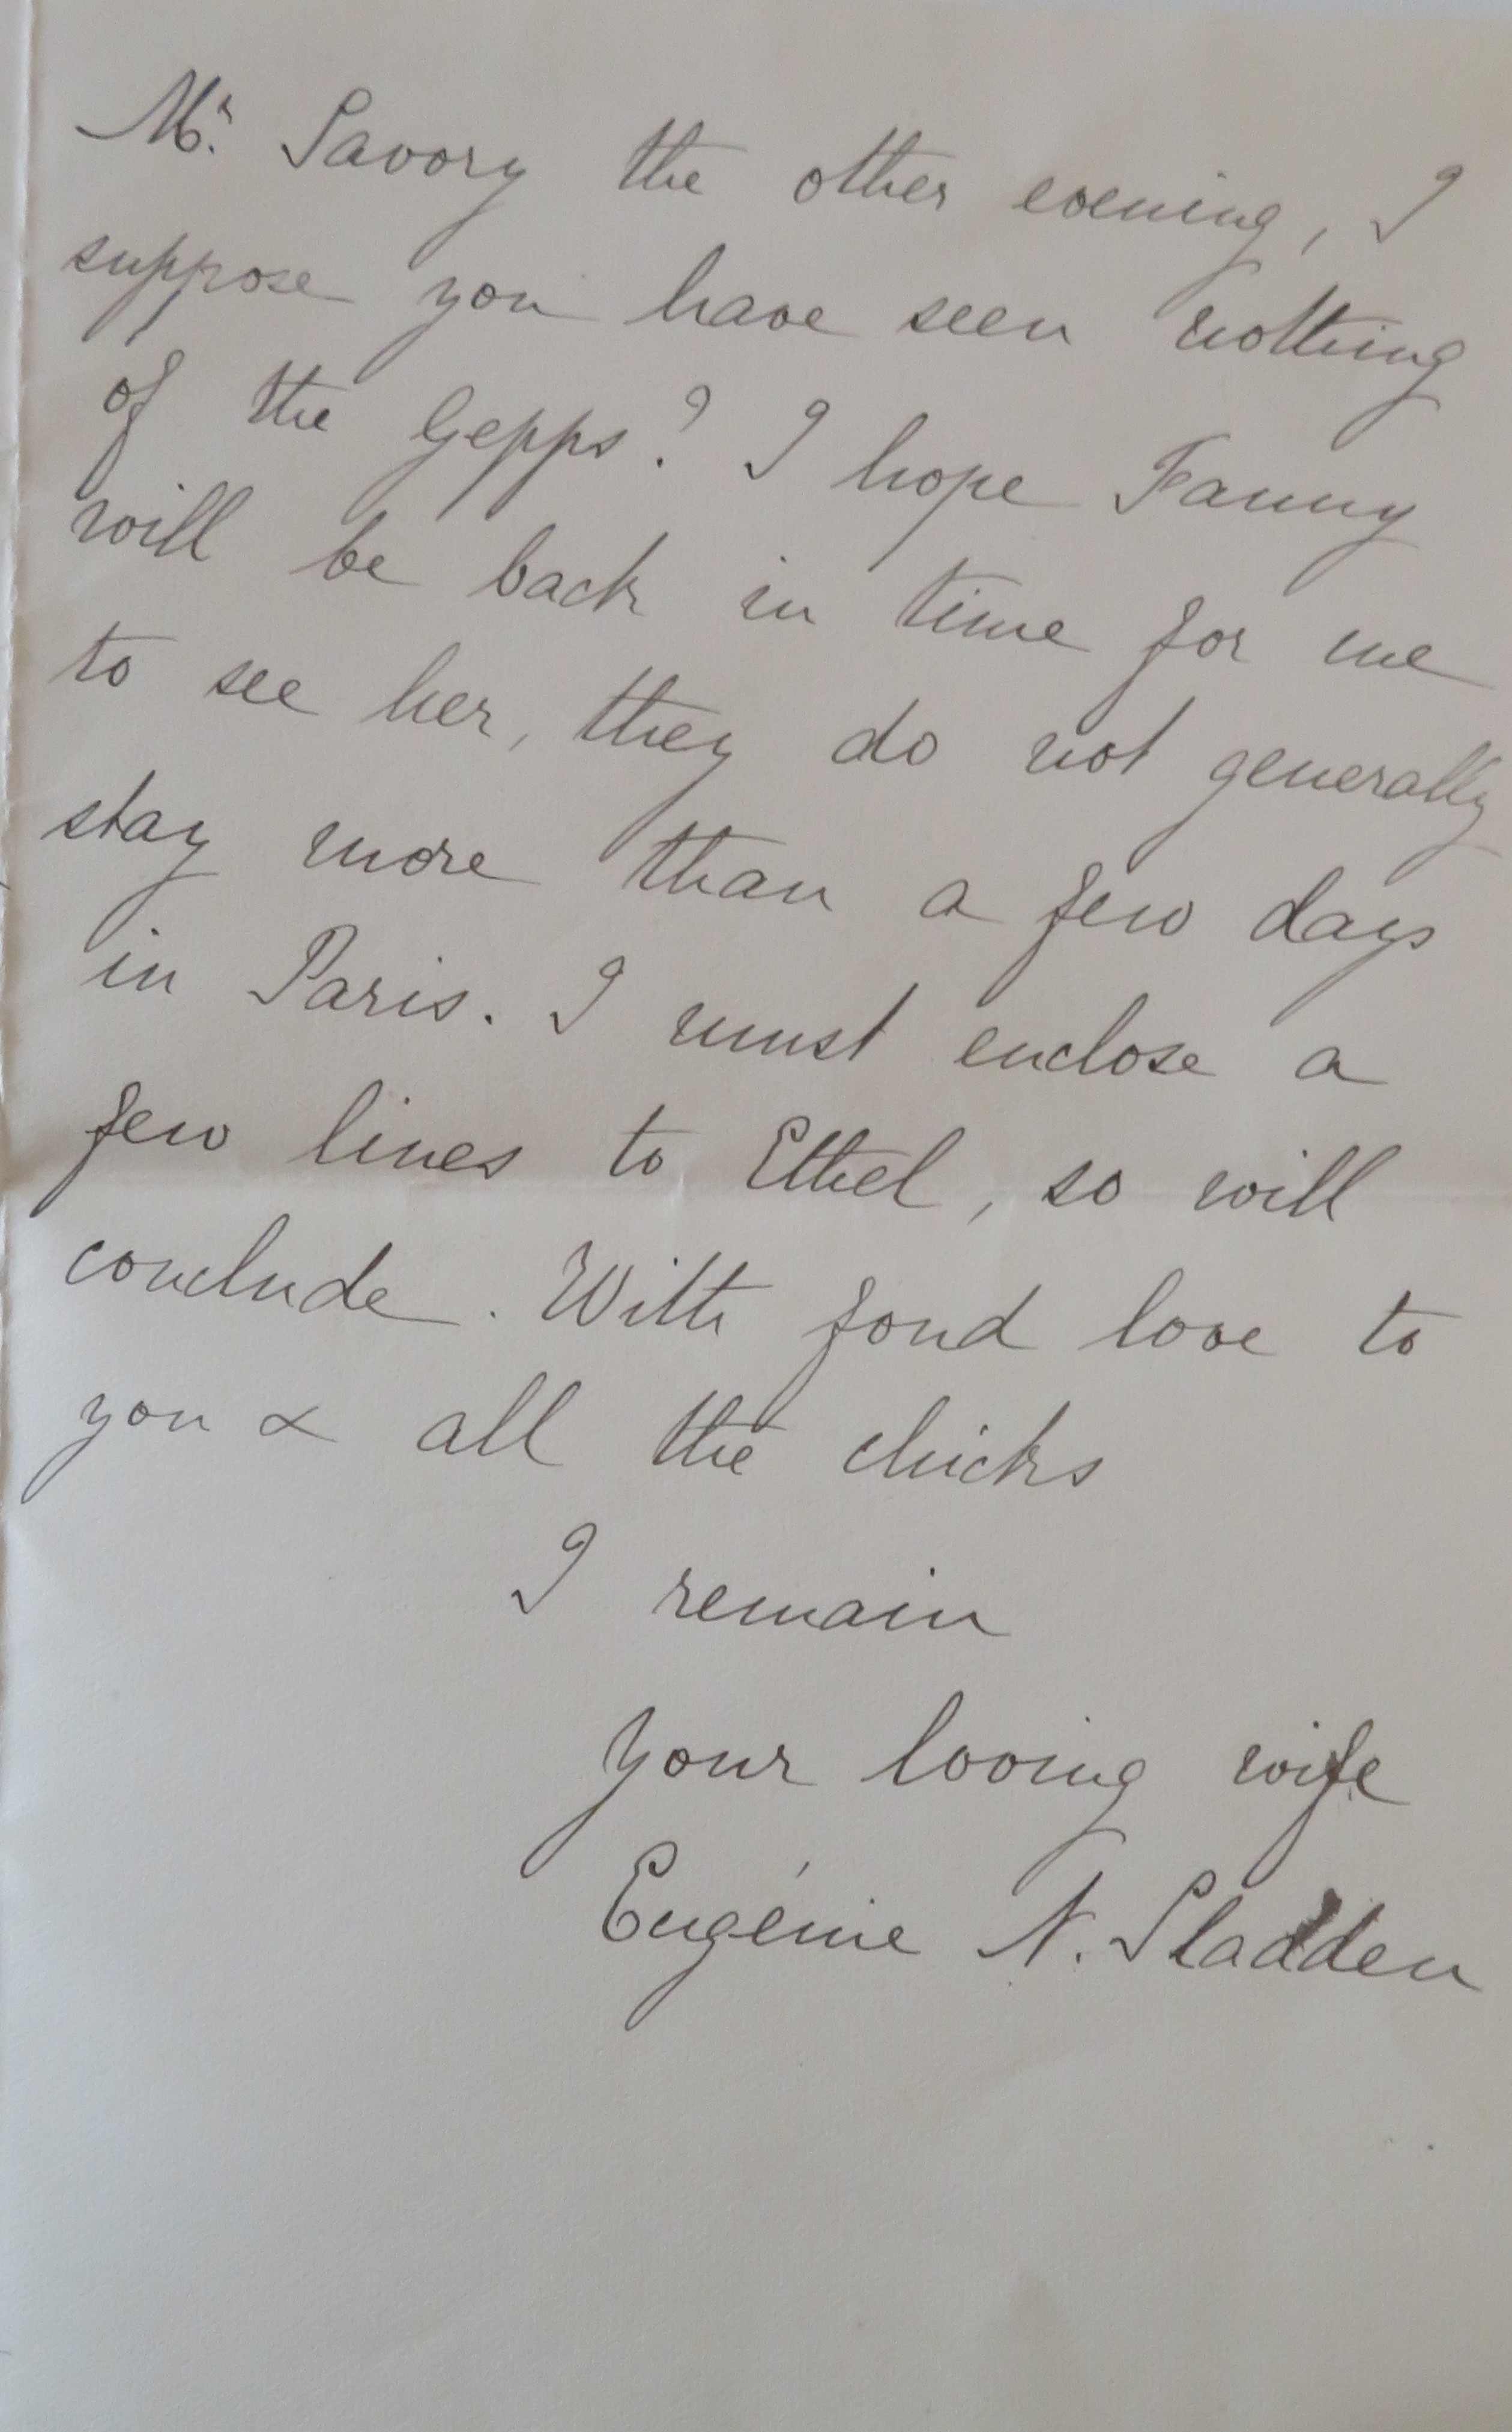 Mr. Savory the other evening, I
suppose you have seen nothing
of the Gepps? I hope Fanny
will be back in time for me
to see her, they do not generally
stay more than a few days
in Paris. I must enclose a
few lines to Ethel, so will
conclude. With fond love to
you & all the chicks
I remain
your loving wife
Eugénie N. Sladden